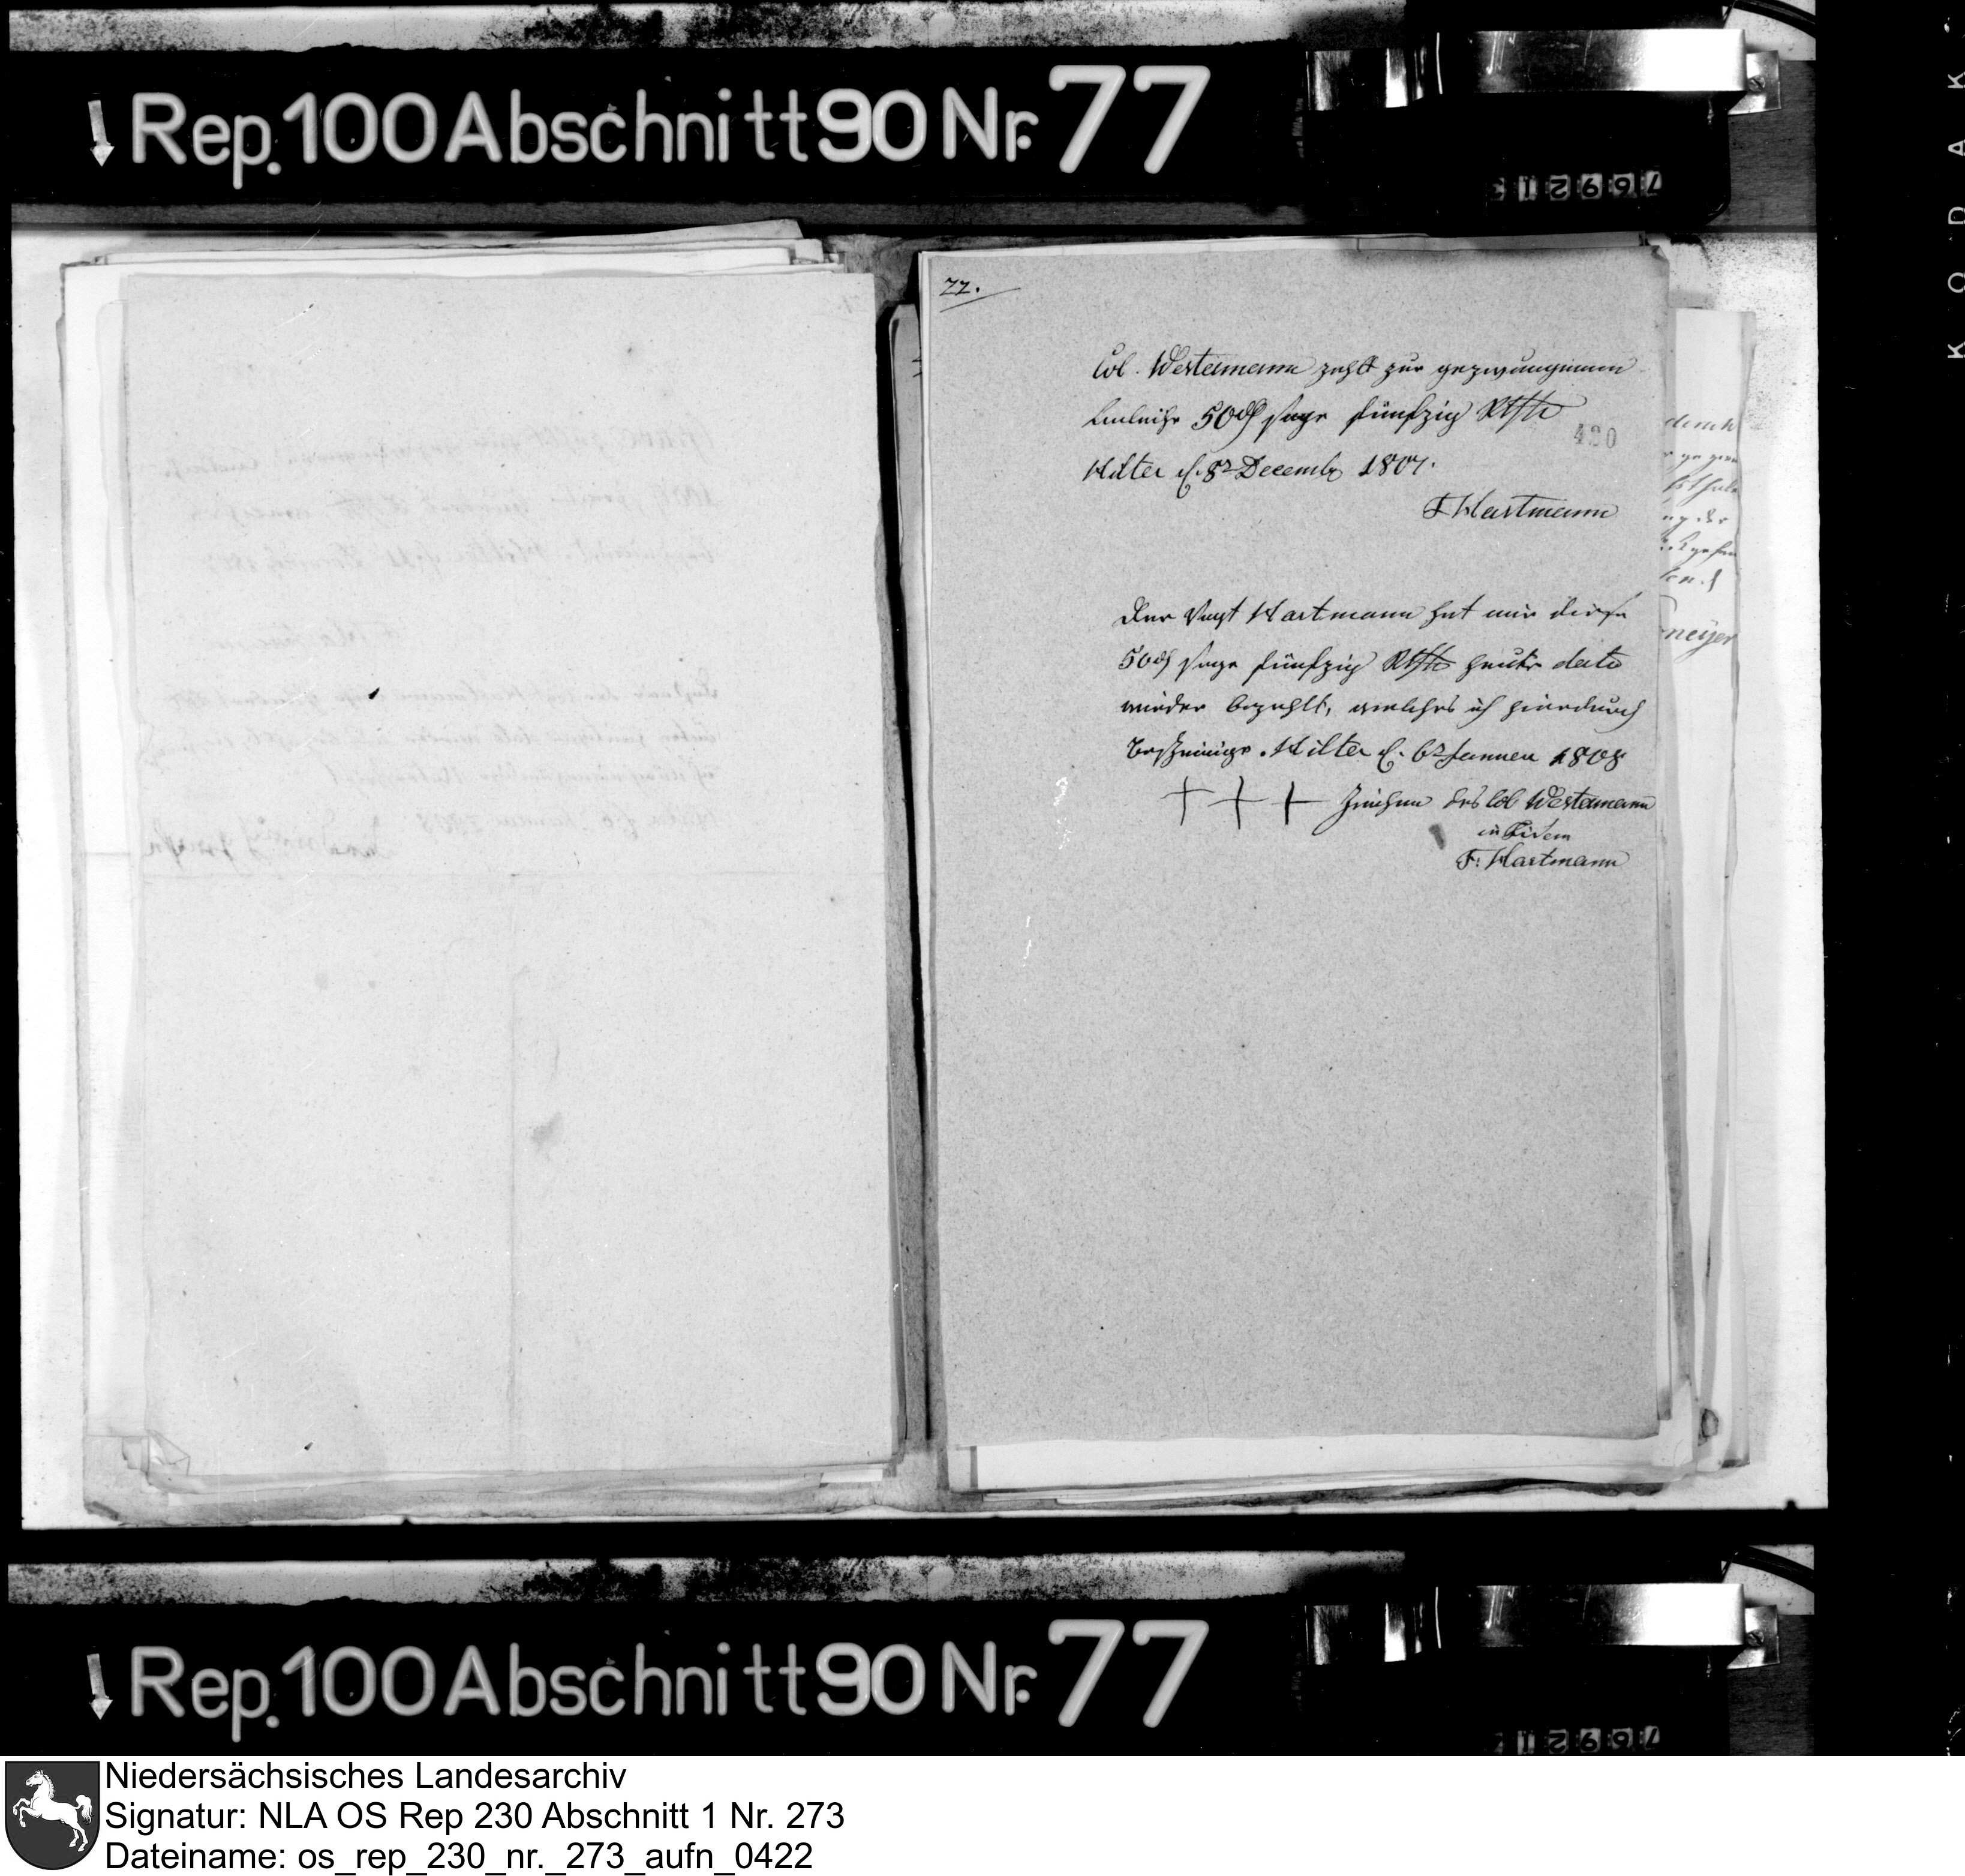 Rep. 100 Abschnitt 90 Nr. 77
KODAK
22.
Col. Westermann zahlt zur gezwungenen
Anleihe 50 rf sage fünfzig Rthlr
430
Hilter d. 8t Decemb 1807.
F Hartmann
Der Vogt Hartmann hat mir diese
50 rf sage fünfzig Rthlr heute dato
wieder bezahlt, welches ich hiedurch
bescheinige. Hilter d. 6t Januar 1808
+ + + Zeichen des Col Westermann
in fidem
F. Hartmann
meyer
Rep. 100 Abschnitt 90 Nr. 77
Niedersächsisches Landesarchiv
Signatur: NLA OS Rep 230 Abschnitt 1 Nr. 273
Dateiname: os_rep_230_nr._273_aufn_0422